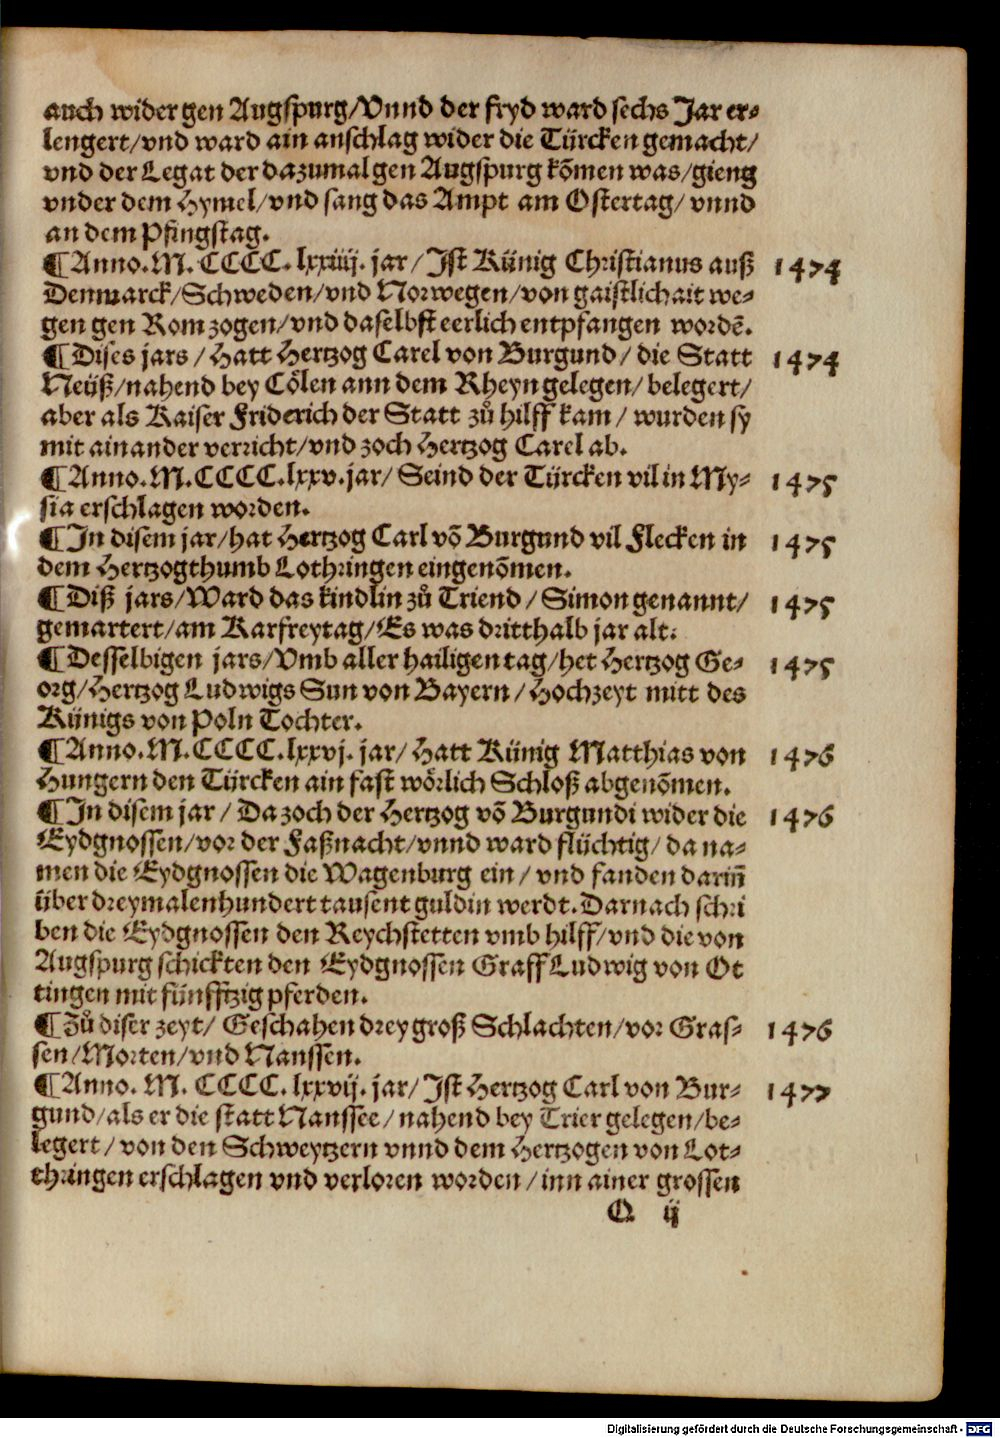 auch wider gen Augspurg/Vnnd der fryd ward sechs Jar er-
lengert/vnd ward ain anschlag wider die Türcken gemacht/
vnd der Legat der dazumal gen Augspurg kõmen was/gieng
vnder dem Hymel/vnd sang das Ampt am Ostertag/vnnd
an dem Pfingstag.
¶Anno.M.CCCC.lxxiiij.jar/Ist Künig Christianus auß 1474
Denmarck/Schweden/vnd Norwegen/von gaistlichait we-
gen gen Rom zogen/vnd daselbst eerlich entpfangen wordẽ.
¶Dises jars/Hatt Hertzog Carel von Burgund/die Statt 1474
Neüß/nahend bey Cölen ann dem Rheyn gelegen/belegert/
aber als Kaiser Friderich der Statt zů hilff kam/wurden sy
mit ainander verricht/vnd zoch Hertzog Carel ab.
¶Anno.M.CCCC.lxxv.jar/Seind der Türcken vil in My- 1475
sia erschlagen worden.
¶In disem jar/hat Hertzog Carl võ Burgund vil Flecken in 1475
dem Hertzogthumb Lothringen eingenõmen.
¶Diß jars/Ward das kindlin zů Triend/Simon genannt/ 1475
gemartert/am Karfreytag/Es was dritthalb jar alt.
¶Desselbigen jars/Vmb aller hailigen tag/het Hertzog Ge- 1475
org/Hertzog Ludwigs Sun von Bayern/Hochzeyt mitt des
Künigs von Poln Tochter.
¶Anno.M.CCCC.lxxvj.jar/Hatt Künig Matthias von 1476
Hungern den Türcken ain fast wörlich Schloß abgenõmen.
¶In disem jar/Da zoch der Hertzog võ Burgundi wider die 1476
Eydgnossen/vor der Faßnacht/vnnd ward flüchtig/da na-
men die Eydgnossen die Wagenburg ein/vnd fanden dariñ
über dreymalenhundert tausent guldin werdt.Darnach schri
ben die Eydgnossen den Reychstetten vmb hilff/vnd die von
Augspurg schickten den Eydgnossen Graff Ludwig von Ot
tingen mit fünfftzig pferden.
¶Zů diser zeyt/Geschahen drey groß Schlachten/vor Gras- 1476
sen/Morten/vnd Nanssen.
¶Anno.M.CCCC.lxxvij.jar/Ist Hertzog Carl von Bur- 1477
gund/als er die statt Nanssee/nahend bey Trier gelegen/be-
legert/von den Schweytzern vnnd dem Hertzogen von Lot-
thringen erschlagen vnd verloren worden/inn ainer grossen
Q ij
Digitalisierung gefördert durch die Deutsche Forschungsgemeinschaft - DFG